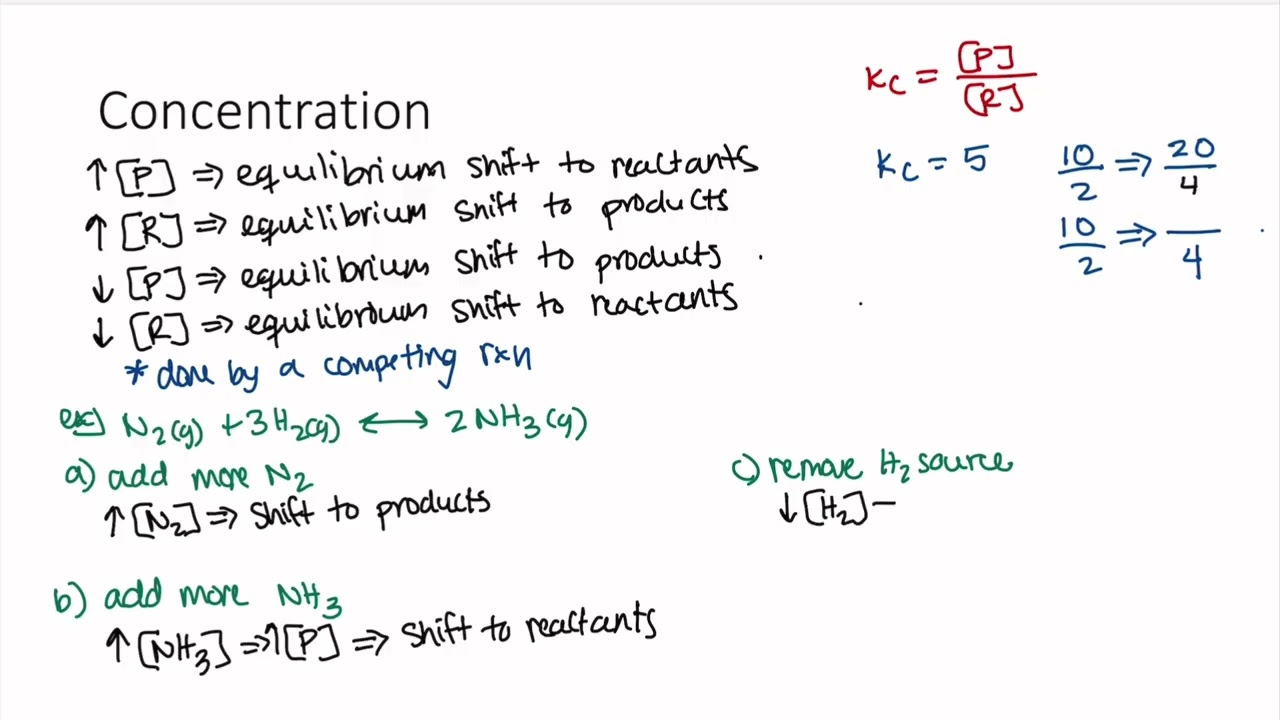 Concentration
↑ [P] ⇒ equilibrium shift to reactants
↑ [R] ⇒ equilibrium shift to products
↓ [P] ⇒ equilibrium shift to products
↓ [R] ⇒ equilibrium shift to reactants
* done by a competing rxn
Kc = [P]/[R]
Kc = 5
10/2 ⇒ 20/4
10/2 ⇒ __/4
ex) N₂(g) + 3H₂(g) ⟷ 2NH₃(g)
a) add more N₂
↑ [N₂] ⇒ shift to products
b) add more NH₃
↑ [NH₃] ⇒ ↑ [P] ⇒ shift to reactants
c) remove H₂ source
↓ [H₂] −